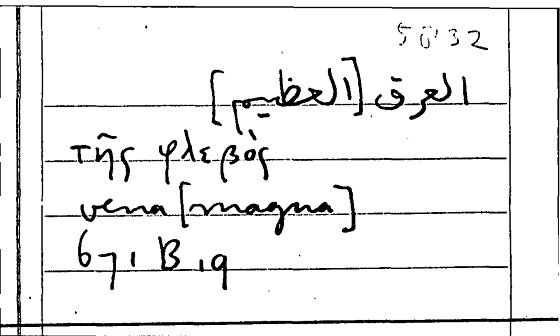 5032
العرق [العظيم]
τῆς φλεβὸς
vena [magna]
671 B 19